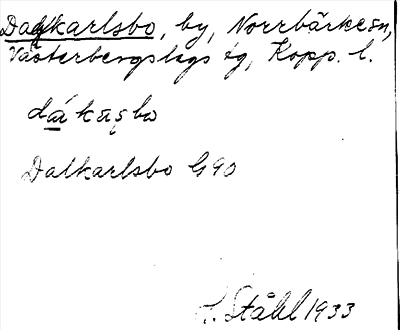 Dalkarlsbo, by, Norrbärke sn,
Västerbergslags fg, Kopp. l.
dákasbo
Dalkarlsbo G90
H. Ståhl 1933